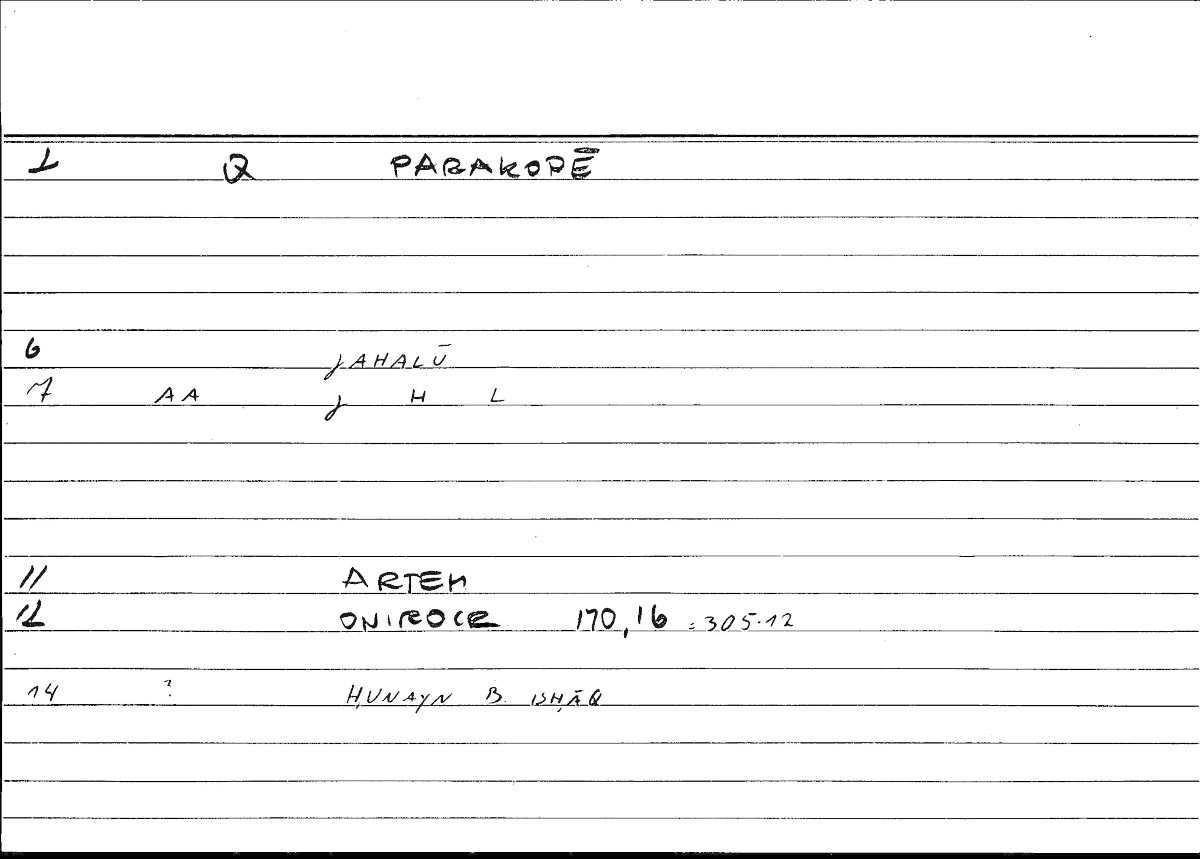 1 Q PARAKOPĒ
6 JAHALŪ
7 AA J H L
11 ARTEM
12 ONIROCR 170,16 = 305.12
14 ? ḤUNAYN B. ISḤĀQ